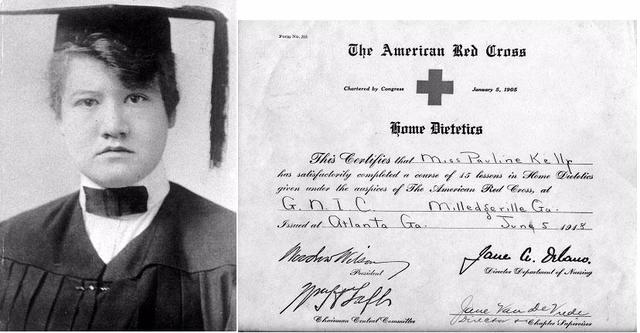 The American Red Cross
Chartered by Congress January 5, 1905
Home Dietetics
This Certifies that Miss Pauline Kelly
has satisfactorily completed a course of 15 lessons in Home Dietetics
given under the auspices of The American Red Cross, at
G. N. I. C. Milledgeville Ga.
Issued at Atlanta Ga. June 5 1918
Woodrow Wilson Jane A. Delano.
President Director Department of Nursing
Wm H Taft Jane Van De Vrede
Chairman Central Committee Director Chapter Supervisor